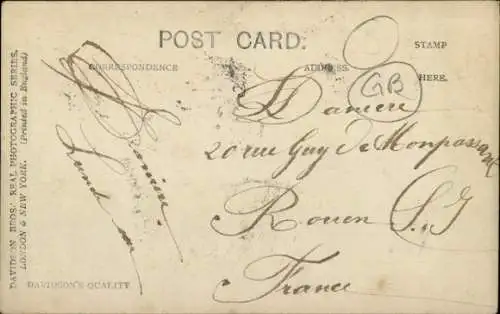 POST CARD.
CORRESPONDENCE
ADDRESS.
STAMP
HERE.
GB
DAVIDSON BROS.' REAL PHOTOGRAPHIC SERIES.
LONDON & NEW YORK. (Printed in England)
20 rue Guy de Monpassant
Rouen S. I
France
DAVIDSON'S QUALITY